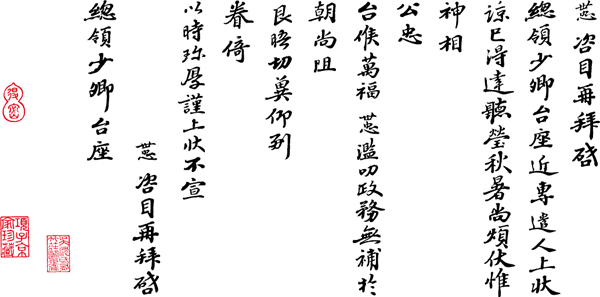 咨目再拜啓
總領少卿台座近專遣人上狀
諒已得達聽瑩秋暑尚煩伏惟
神相
公忠
台候萬福 濫叨政務無補於
朝尚阻
良晤切冀仰到
眷倚
以時珎厚謹上狀不宣
咨目再拜啓
總領少卿台座
項子京
家珍藏